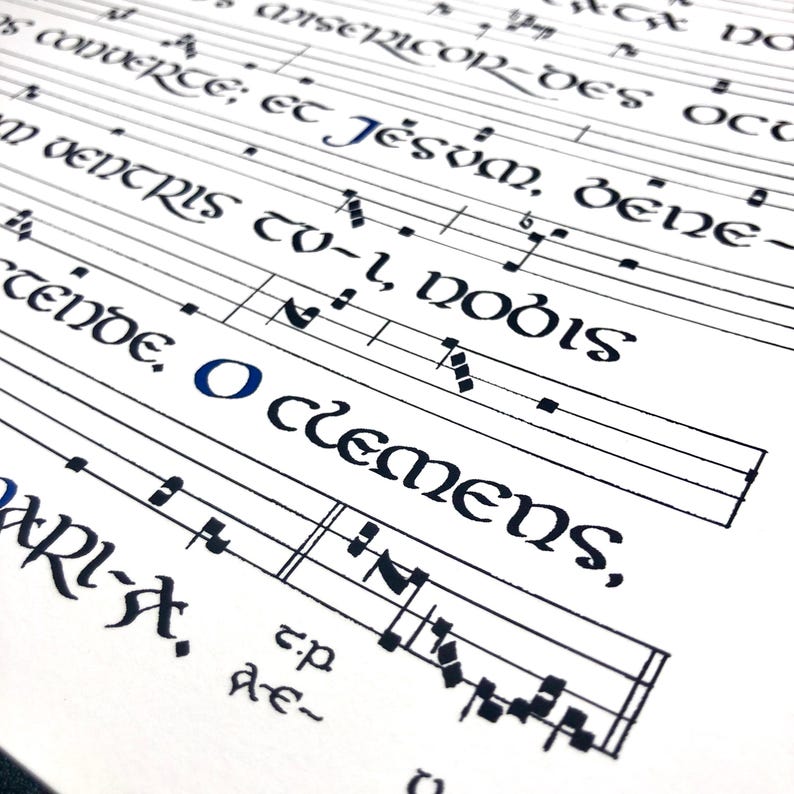 MISERICOR-DES OCU
CONVERTE; ET JESUM, BENE-
VENTRIS TU-I, NOBIS
STENDE. O CLEMENS,
ARI-A.
T.P.
A-E-